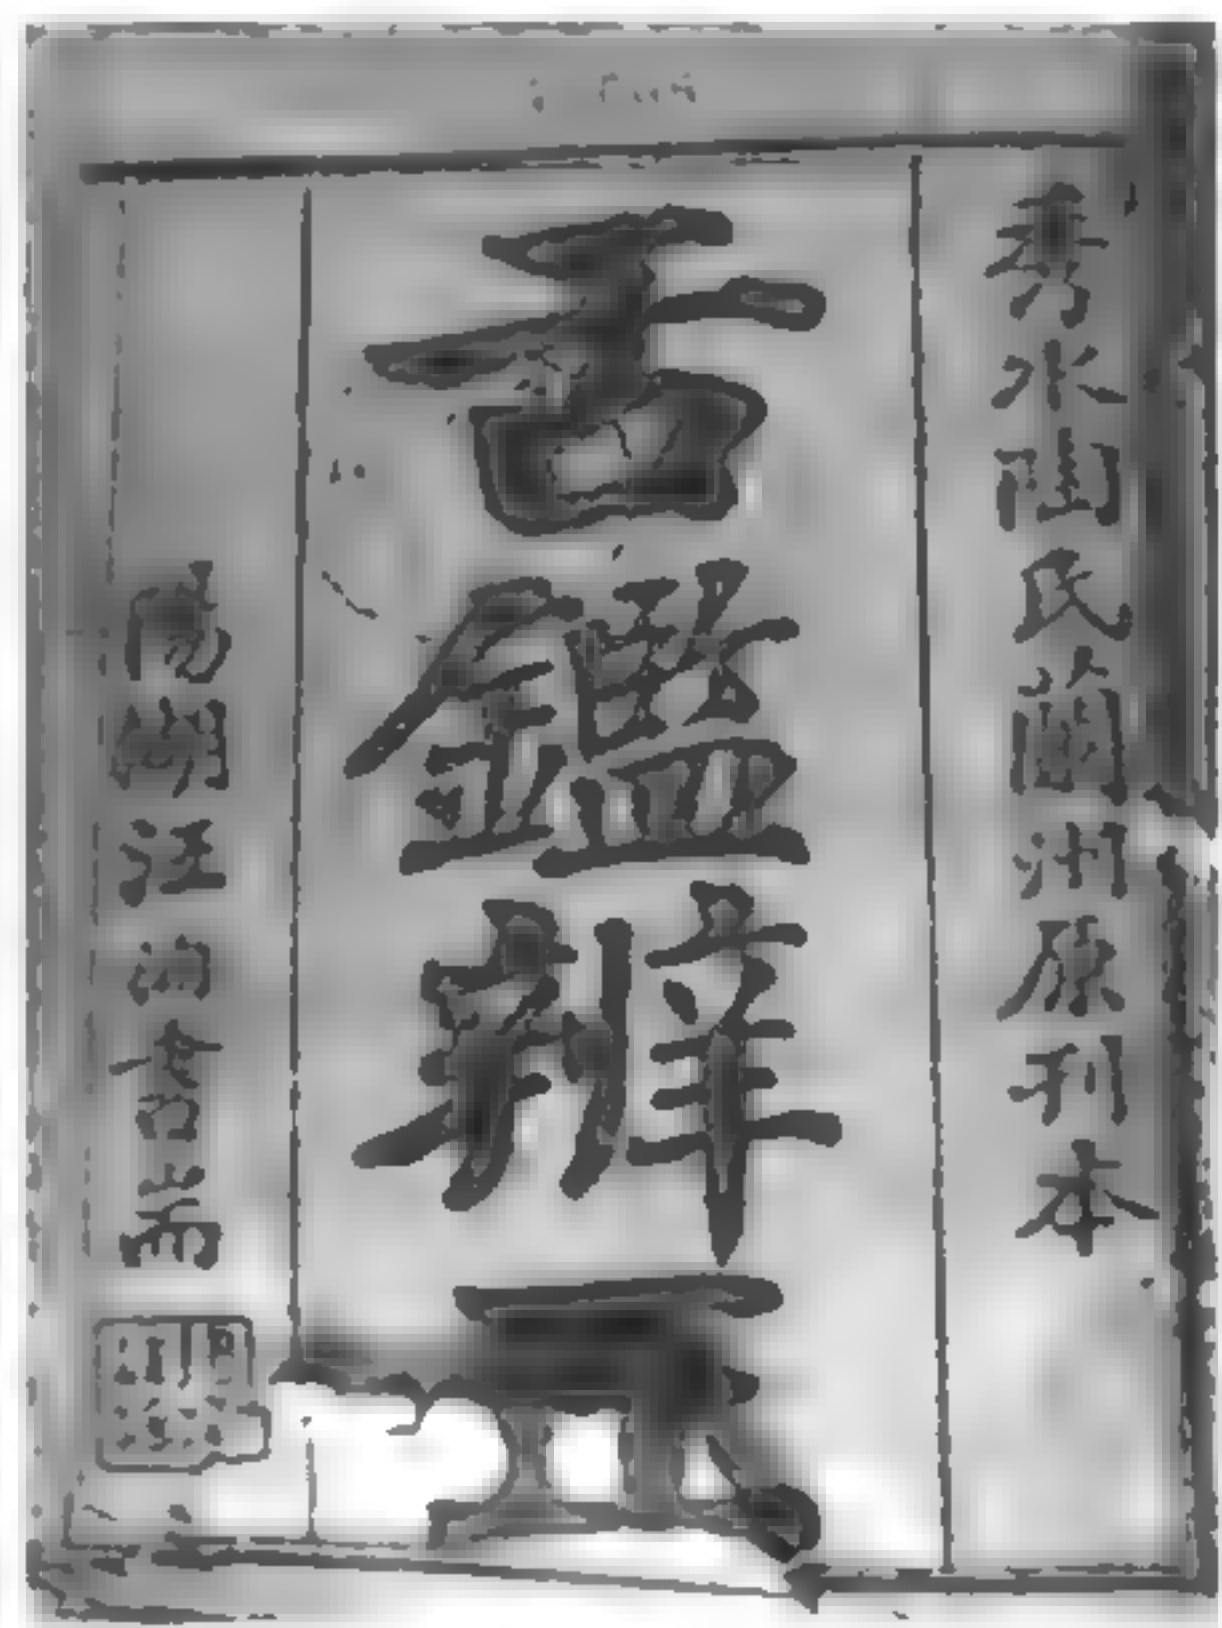 秀水陶氏蘭洲原刊本
舌鑑辨正
陽湖汪洵書耑